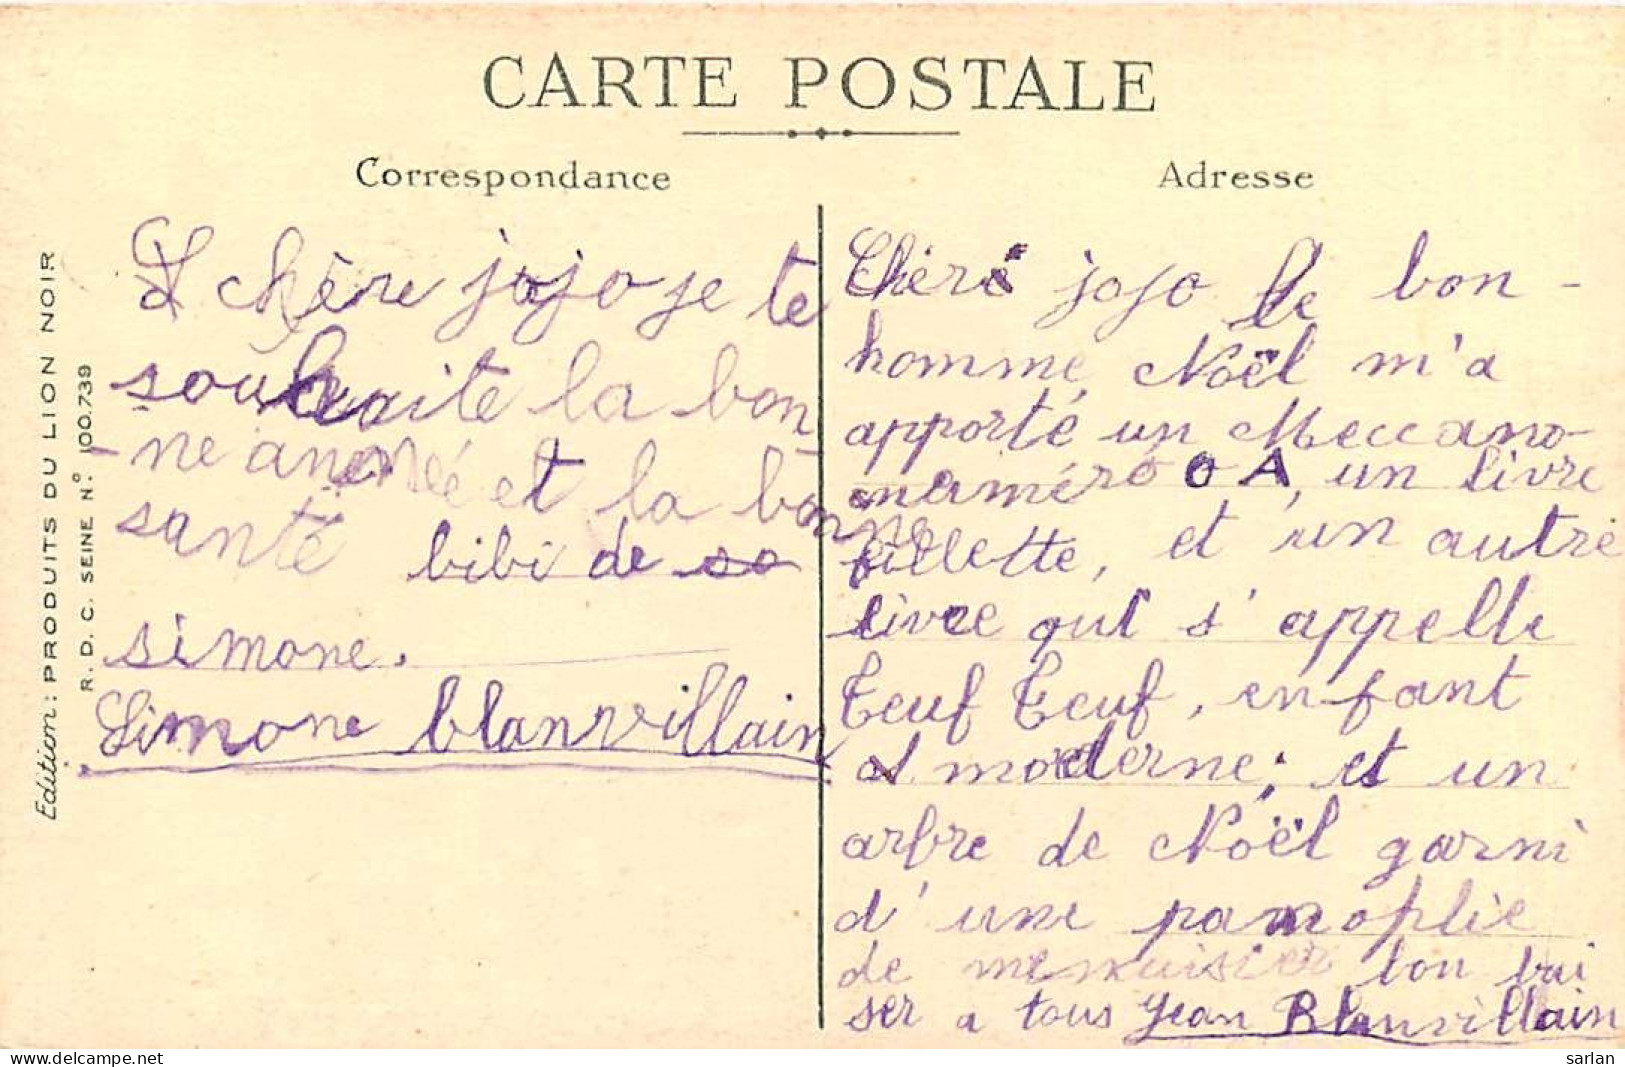 CARTE POSTALE
Correspondance
Adresse
Edition: PRODUITS DU LION NOIR
R. D. C. SEINE N.° 100.739
chère jojo je te
souhaite la bon
-ne année et la bonne
santé bibi de so
simone.
Simone blanvillain
Chéré jojo le bon-
homme Noël m'a
apporté un Meccano
numéro O A, un livre
fillette, et un autre
livre qui s'appelle
Teuf Teuf, enfant
moderne; et un
arbre de Noël garni
d'une panoplie
de menuisier bon bai
ser a tous Jean Blanvillain
sarlan